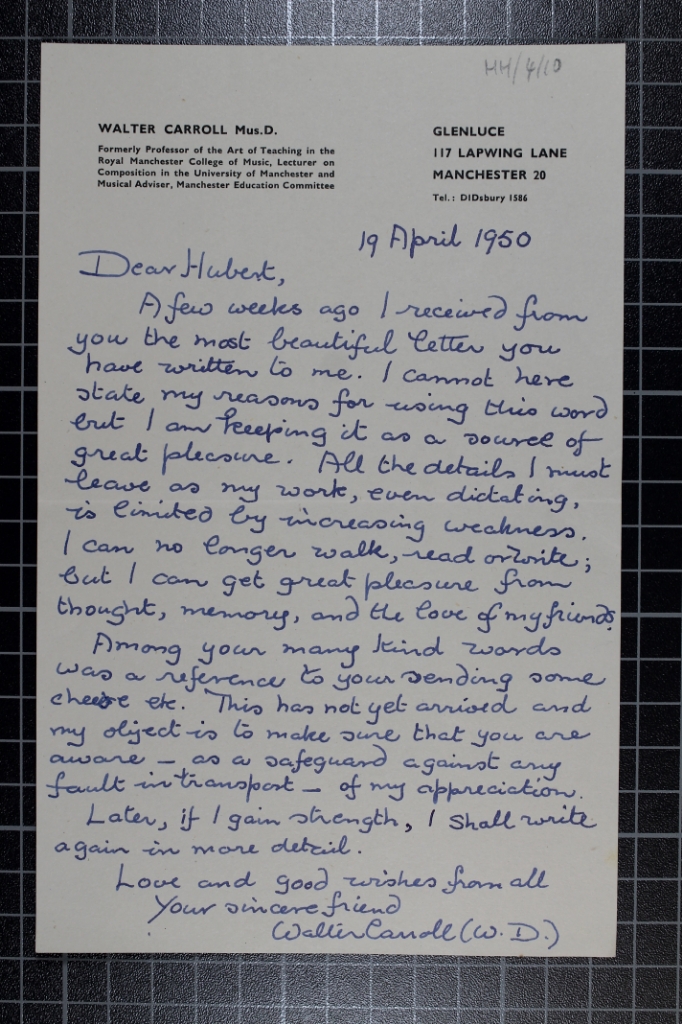 HH/4/10
WALTER CARROLL Mus.D.
Formerly Professor of the Art of Teaching in the
Royal Manchester College of Music, Lecturer on
Composition in the University of Manchester and
Musical Adviser, Manchester Education Committee
GLENLUCE
117 LAPWING LANE
MANCHESTER 20
Tel.: DIDsbury 1586
19 April 1950
Dear Hubert,
A few weeks ago I received from
you the most beautiful letter you
have written to me. I cannot here
state my reasons for using this word
but I am keeping it as a source of
great pleasure. All the details I must
leave as my work, even dictating,
is limited by increasing weakness.
I can no longer walk, read or write;
but I can get great pleasure from
thought, memory, and the love of my friends.
Among your many kind words
was a reference to your sending some
cheese etc. This has not yet arrived and
my object is to make sure that you are
aware – as a safeguard against any
fault in transport – of my appreciation.
Later, if I gain strength, I shall write
again in more detail.
Love and good wishes from all
Your sincere friend
Walter Carroll (W.D.)